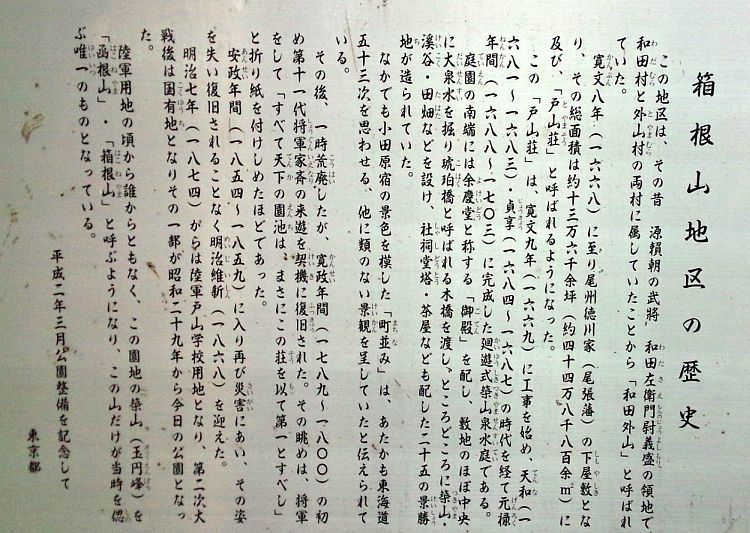 箱根山地区の歴史
この地区は、その昔　源頼朝の武将　和田左衛門尉義盛の領地で、
和田村と外山村の両村に属していたことから「和田外山」と呼ばれ
ていた。
寛文八年（一六六八）に至り尾州徳川家（尾張藩）の下屋敷とな
り、その総面積は約十三万六千余坪（約四十四万八千八百余㎡）に
及び、「戸山荘」と呼ばれるようになった。
この「戸山荘」は、寛文九年（一六六九）に工事を始め、天和（一
六八一～一六八三）・貞享（一六八四～一六八七）の時代を経て元禄
年間（一六八八～一七〇三）に完成した廻遊式築山泉水庭である。
庭園の南端には余慶堂と称する「御殿」を配し、敷地のほぼ中央
に大泉水を掘り琥珀橋と呼ばれる木橋を渡し、ところどころに築山・
渓谷・田畑などを設け、社祠堂塔・茶屋なども配した二十五の景勝
地が造られていた。
なかでも小田原宿の景色を模した「町並み」は、あたかも東海道
五十三次を思わせる、他に類のない景観を呈していたと伝えられて
いる。
その後、一時荒廃したが、寛政年間（一七八九～一八〇〇）の初
め第十一代将軍家斉の来遊を契機に復旧された。その眺めは、将軍
をして「すべて天下の園池は、まさにこの荘を以て第一とすべし」
と折り紙を付けしめたほどであった。
安政年間（一八五四～一八五九）に入り再び災害にあい、その姿
を失い復旧されることなく明治維新（一八六八）を迎えた。
明治七年（一八七四）からは陸軍戸山学校用地となり、第二次大
戦後は国有地となりその一部が昭和二十九年から今日の公園となっ
た。
陸軍用地の頃から誰からともなく、この園地の築山（玉円峰）を
「函根山」・「箱根山」と呼ぶようになり、この山だけが当時を偲
ぶ唯一のものとなっている。
平成二年三月公園整備を記念して
東京都